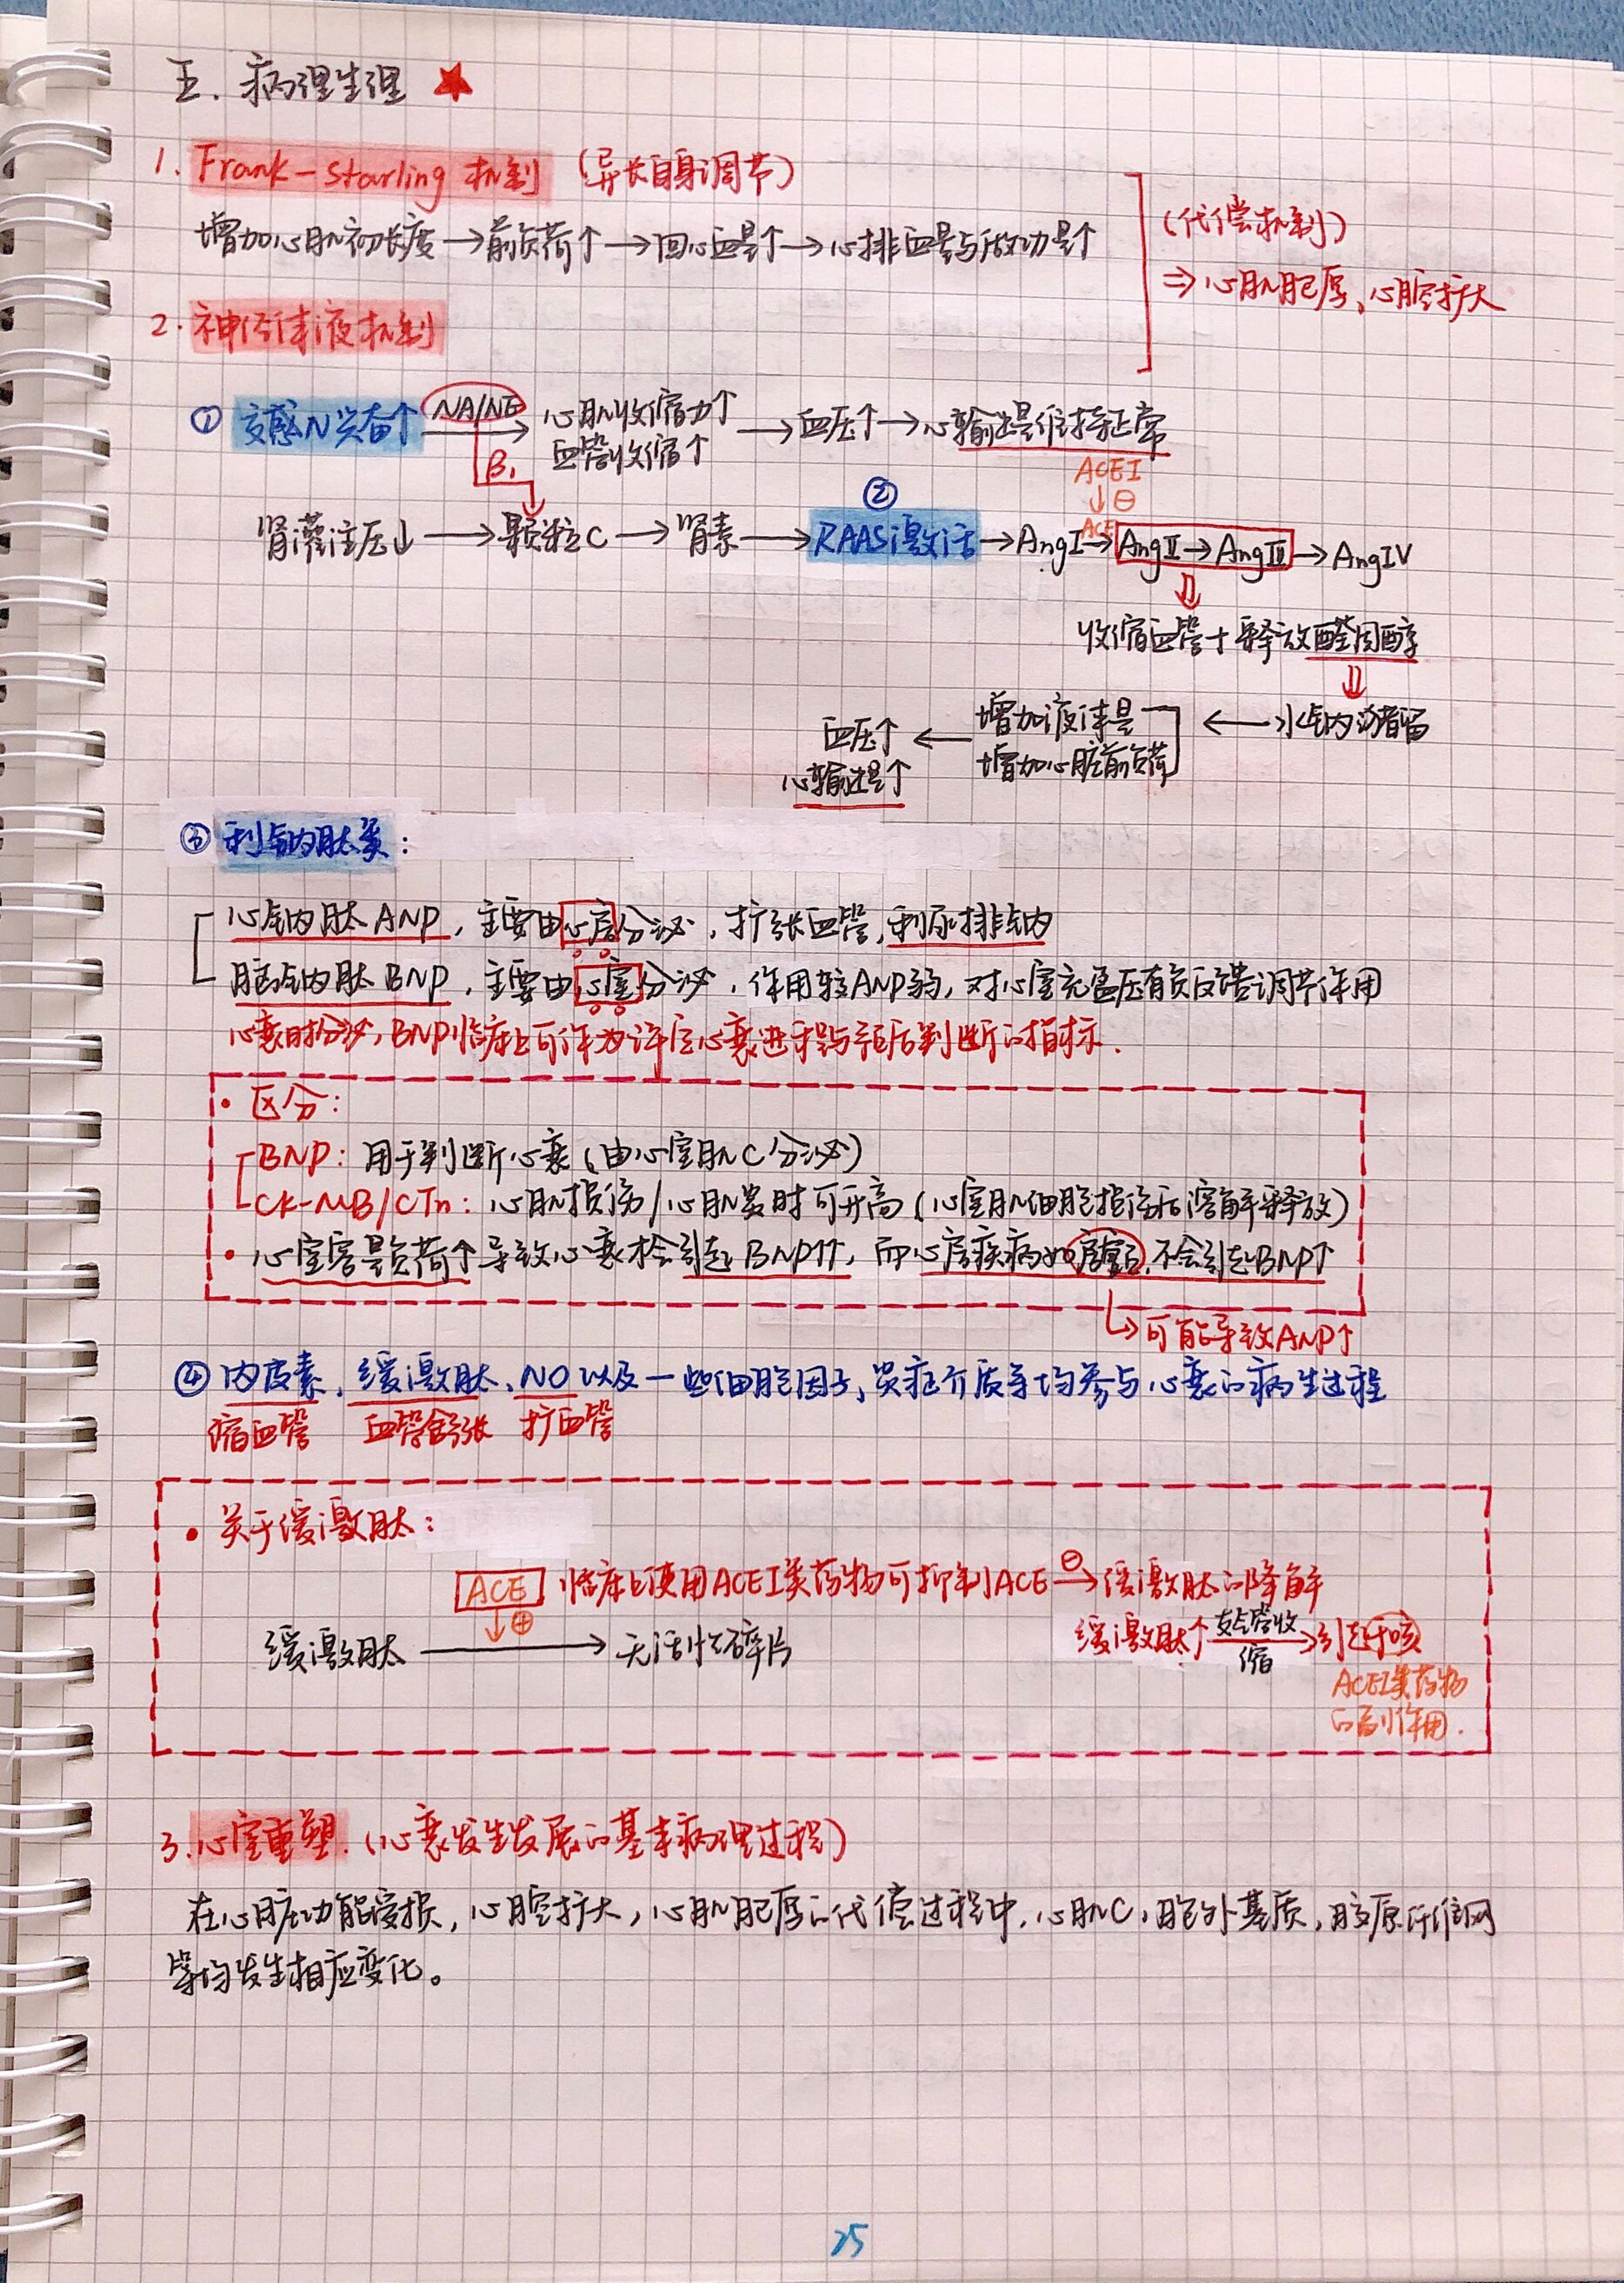 五. 病理生理
1. Frank-Starling 机制 (异长自身调节)
增加心肌初长度→前负荷↑→回心血量↑→心排血量与做功量↑
(代偿机制)
⇒心肌肥厚、心腔扩大
2. 神经体液机制
① 交感N兴奋↑ NA/NE 心肌收缩力↑ 血管收缩↑ →血压↑→心输出量维持正常
β₁
ACEI
↓⊖
②
肾灌注压↓→颗粒C→肾素→RAAS激活→AngⅠ ACE→AngⅡ→AngⅢ→AngⅣ
⇓
收缩血管+释放醛固酮
⇓
血压↑ 心输出量↑ ← 增加液体量 增加心脏前负荷 ← 水钠潴留
③ 利钠肽类:
心钠肽ANP, 主要由心房分泌, 扩张血管, 利尿排钠
脑钠肽BNP, 主要由心室分泌, 作用较ANP弱, 对心室充盈压有负反馈调节作用
心衰时分泌, BNP临床上可作为评定心衰进程与预后判断的指标.
• 区分:
BNP: 用于判断心衰(由心室肌C分泌)
CK-MB/CTn: 心肌损伤/心肌炎时可升高(心室肌细胞损伤后溶解释放)
• 心室容量负荷↑导致心衰才会引起BNP↑↑, 而心房疾病如房颤, 不会引起BNP↑
↳可能导致ANP↑
④ 内皮素、缓激肽、NO以及一些细胞因子, 炎症介质等均参与心衰的病生过程
缩血管 血管舒张 扩血管
• 关于缓激肽:
ACE 临床上使用ACEI类药物可抑制ACE ⊖→缓激肽的降解
↓⊕
缓激肽→无活性碎片 缓激肽↑ 支气管收缩→引起干咳
ACEI类药物
的副作用.
3. 心室重塑. (心衰发生发展的基本病理过程)
在心脏功能受损, 心腔扩大, 心肌肥厚的代偿过程中, 心肌C, 胞外基质, 胶原纤维网
等均发生相应变化。
25